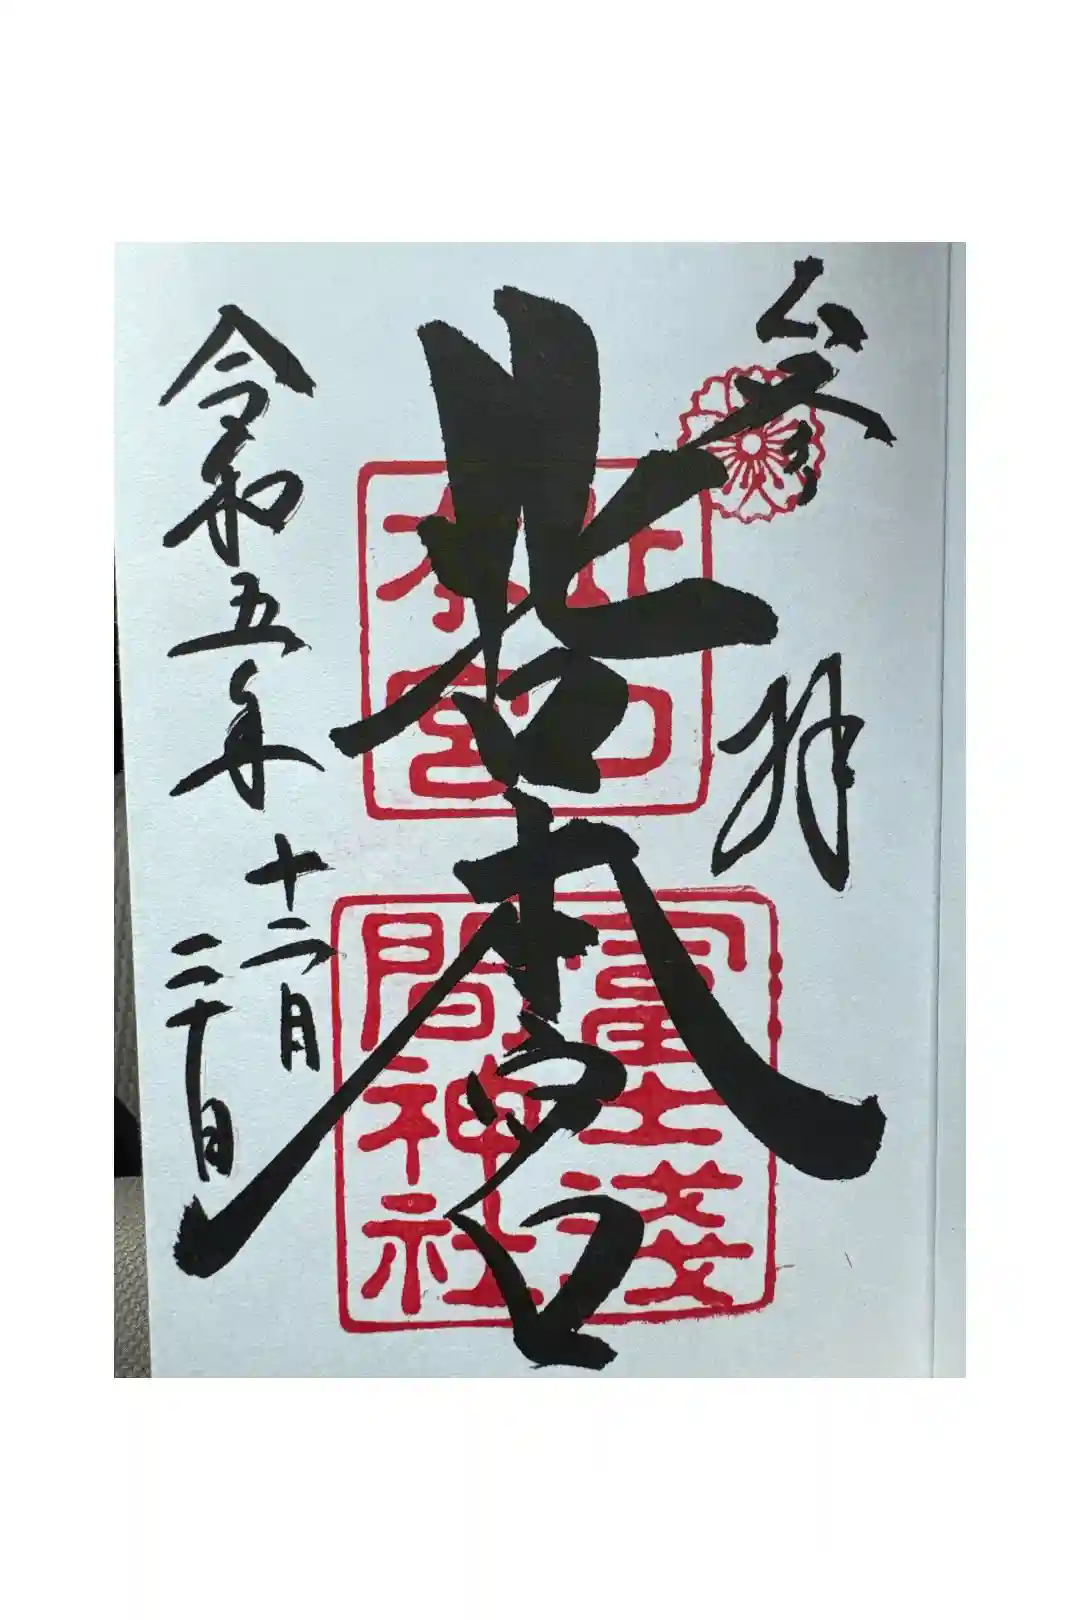 参拝
北口本宮
北口
本宮
冨士淺
間神社
令和五年
十二月
二十日